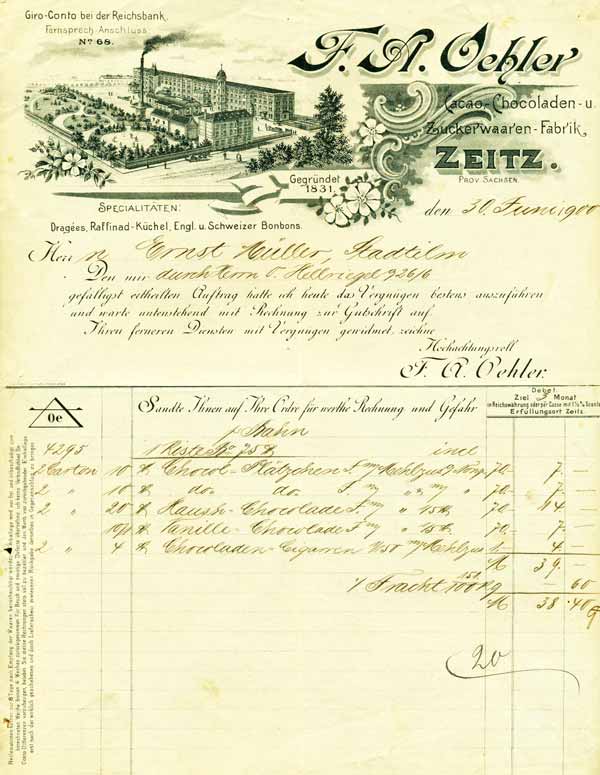 Giro-Conto bei der Reichsbank.
Fernsprech-Anschluss
No 68.
F. A. Oehler
Cacao-Chocoladen- u.
Zuckerwaaren-Fabrik,
ZEITZ.
PROV. SACHSEN.
Gegründet
1831.
SPECIALITÄTEN:
Dragées, Raffinad-Küchel, Engl. u. Schweizer Bonbons.
den 30. Juni 1900
Herrn Ernst Müller, Stadtilm
Den mir durch Herrn O. Hellriegel 926/6
gefälligst ertheilten Auftrag hatte ich heute das Vergnügen bestens auszuführen
und warte untenstehend mit Rechnung zur Gutschrift auf.
Ihren ferneren Diensten mit Vergnügen gewidmet, zeichne
Hochachtungsvoll
F. A. Oehler.
Oe
Sandte Ihnen auf Ihre Ordre für werthe Rechnung und Gefahr
Debet.
Ziel 3 Monat
in Reichswährung oder per Casse mit 1½ % Sconto
Erfüllungsort Zeitz.
p Bahn
4295 1 Kiste No 75 incl
2 Carton 10 Chocol-Plätzchen 70.- 7. -
2 " 10 do. do. 70.- 7. -
2 " 20 Haush-Chocolade 70.- 14 -
10/1 Vanille-Chocolade 70- 7. -
2 " 4 Chocoladen-Cigarren 4. -
M 39. -
Fracht 100 Kg - 60
M 38. 40
20